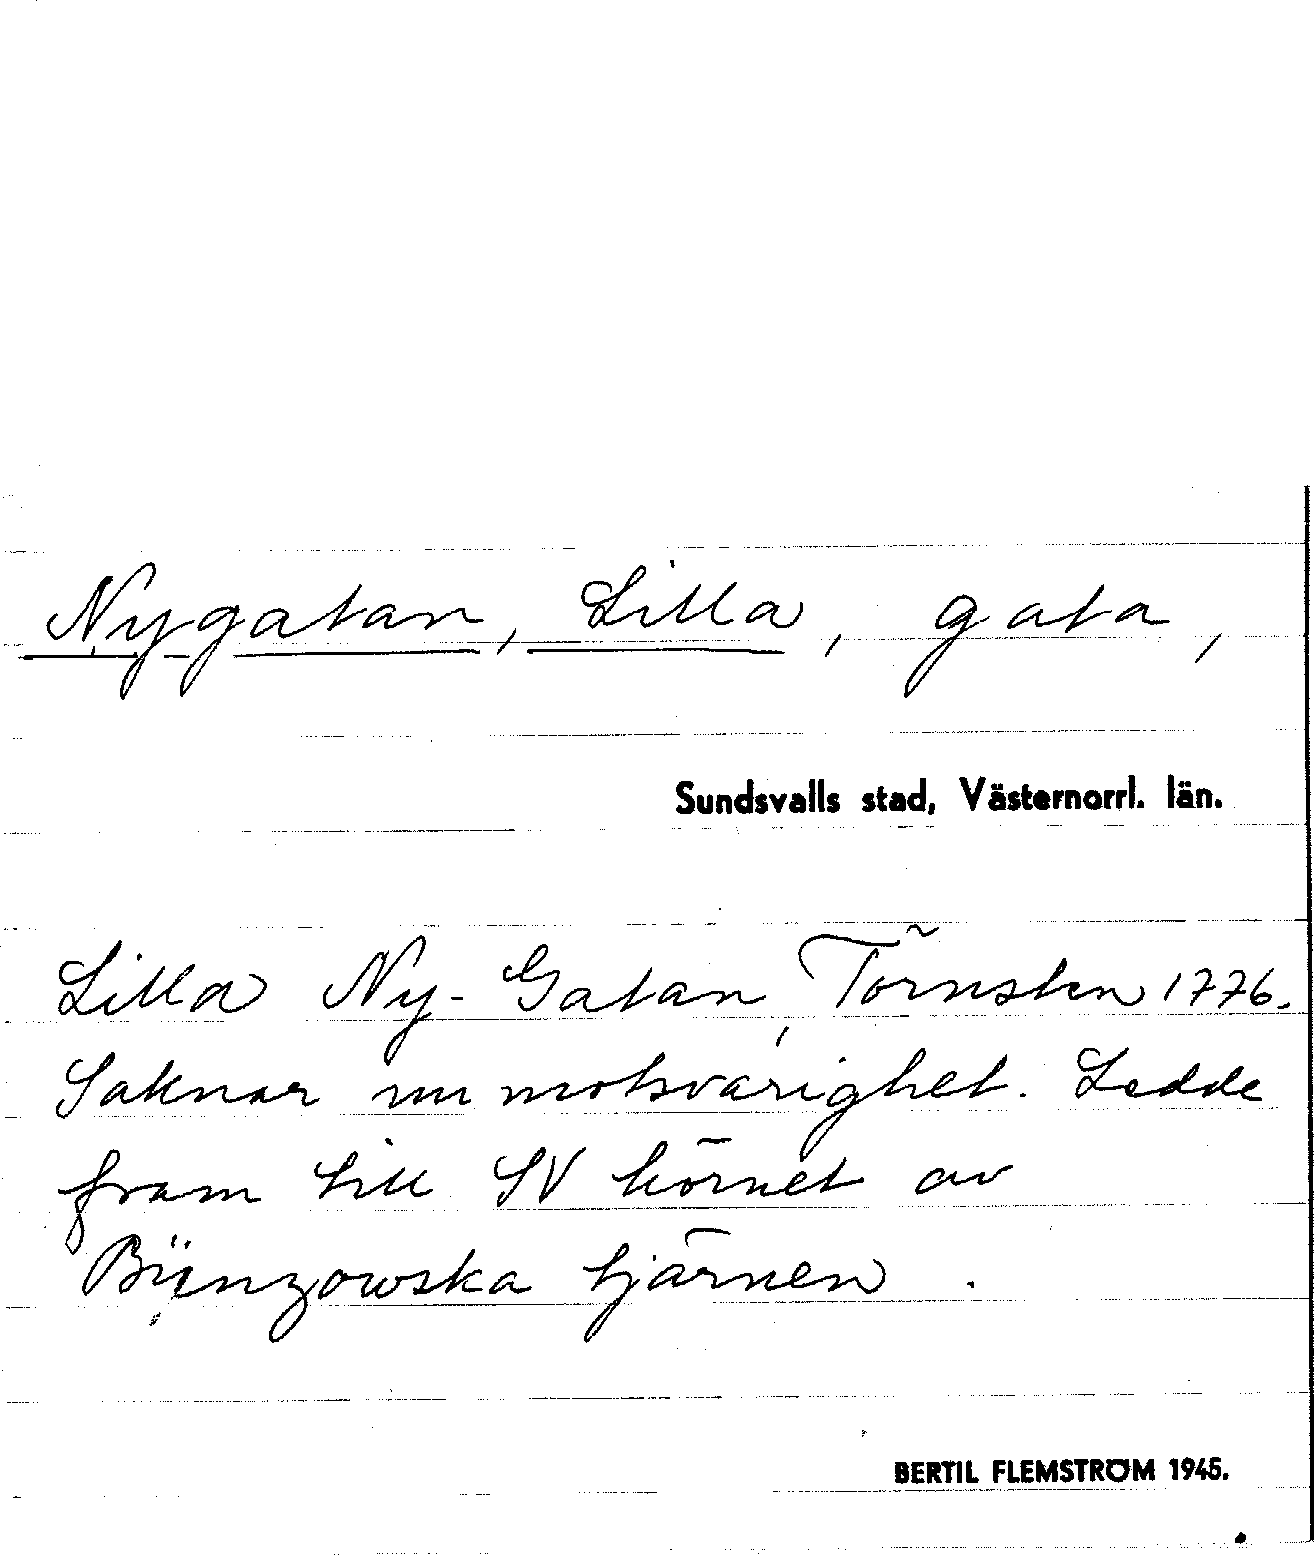 Nygatan, Lilla, gata,
Sundsvalls stad, Västernorrl. län.
Lilla Ny-Gatan, Törnsten 1776.
Saknar nu motsvarighet. Ledde
fram till SV hörnet av
Bünzowska tjärnen.
BERTIL FLEMSTRÖM 1945.